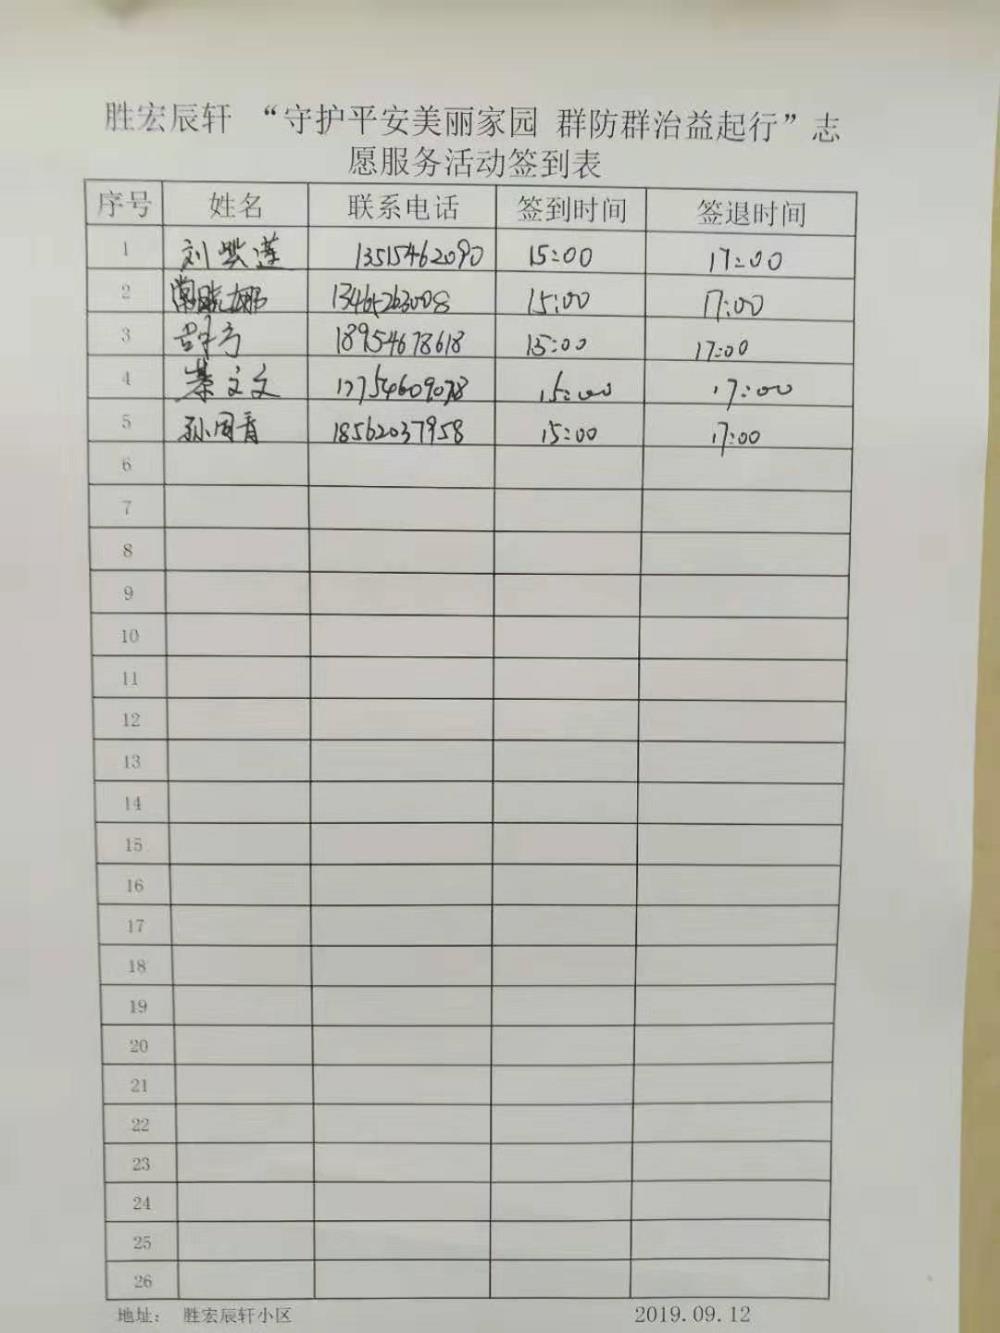 胜宏辰轩 “守护平安美丽家园 群防群治益起行”志
愿服务活动签到表
序号 姓名 联系电话 签到时间 签退时间
1 刘紫莲 13515462090 15:00 17:00
2 常晓娜 13465263008 15:00 17:00
3 18954678618 15:00 17:00
4 綦文文 17754609078 15:00 17:00
5 孙国青 18562037958 15:00 17:00
6
7
8
9
10
11
12
13
14
15
16
17
18
19
20
21
22
23
24
25
26
地址： 胜宏辰轩小区 2019.09.12